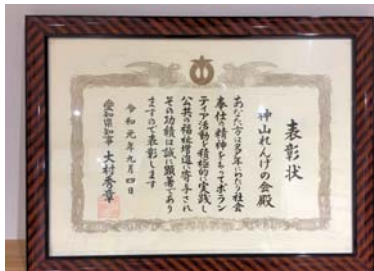 表彰状
神山れんげの会殿
あなた方は多年にわたり社会
奉仕の精神をもってボラン
ティア活動を積極的に実践し
公共の福祉増進に寄与され
その功績は誠に顕著であり
ますので表彰します
令和元年九月四日
愛知県知事 大村秀章